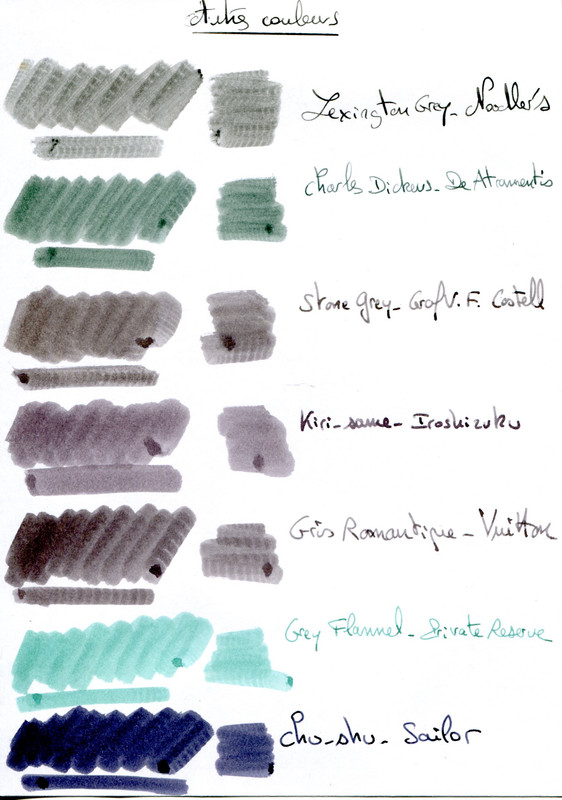 Autres couleurs
Lexington Grey - Noodler's
Charles Dickens - De Atramentis
Stone Grey - Graf V. F. Castell
Kiri-same - Iroshizuku
Gris Romantique - Vuitton
Grey Flannel - Private Reserve
Chu-shu - Sailor